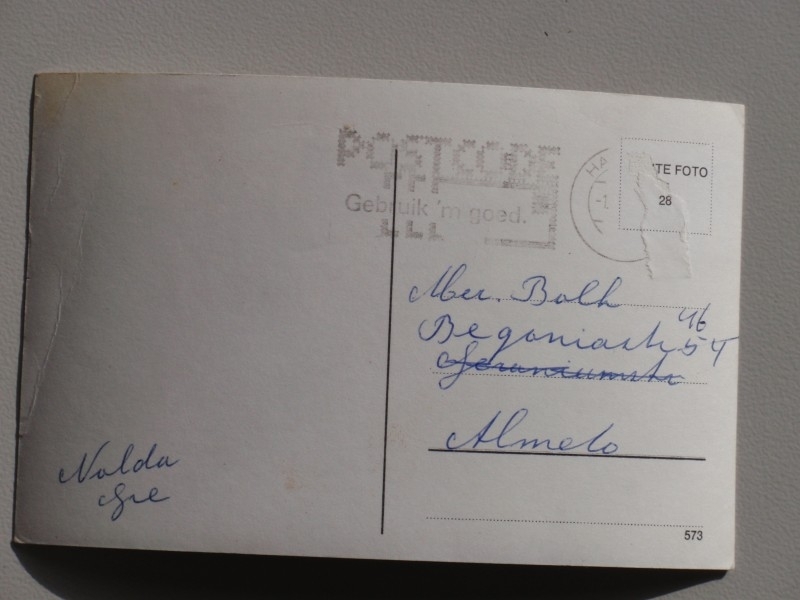 POSTCODE
Gebruik 'm goed.
HA
TE FOTO
28
Mer. Bolk
46
Begoniastr 54
Geraniumstr
Almelo
Nolda
Gre
573